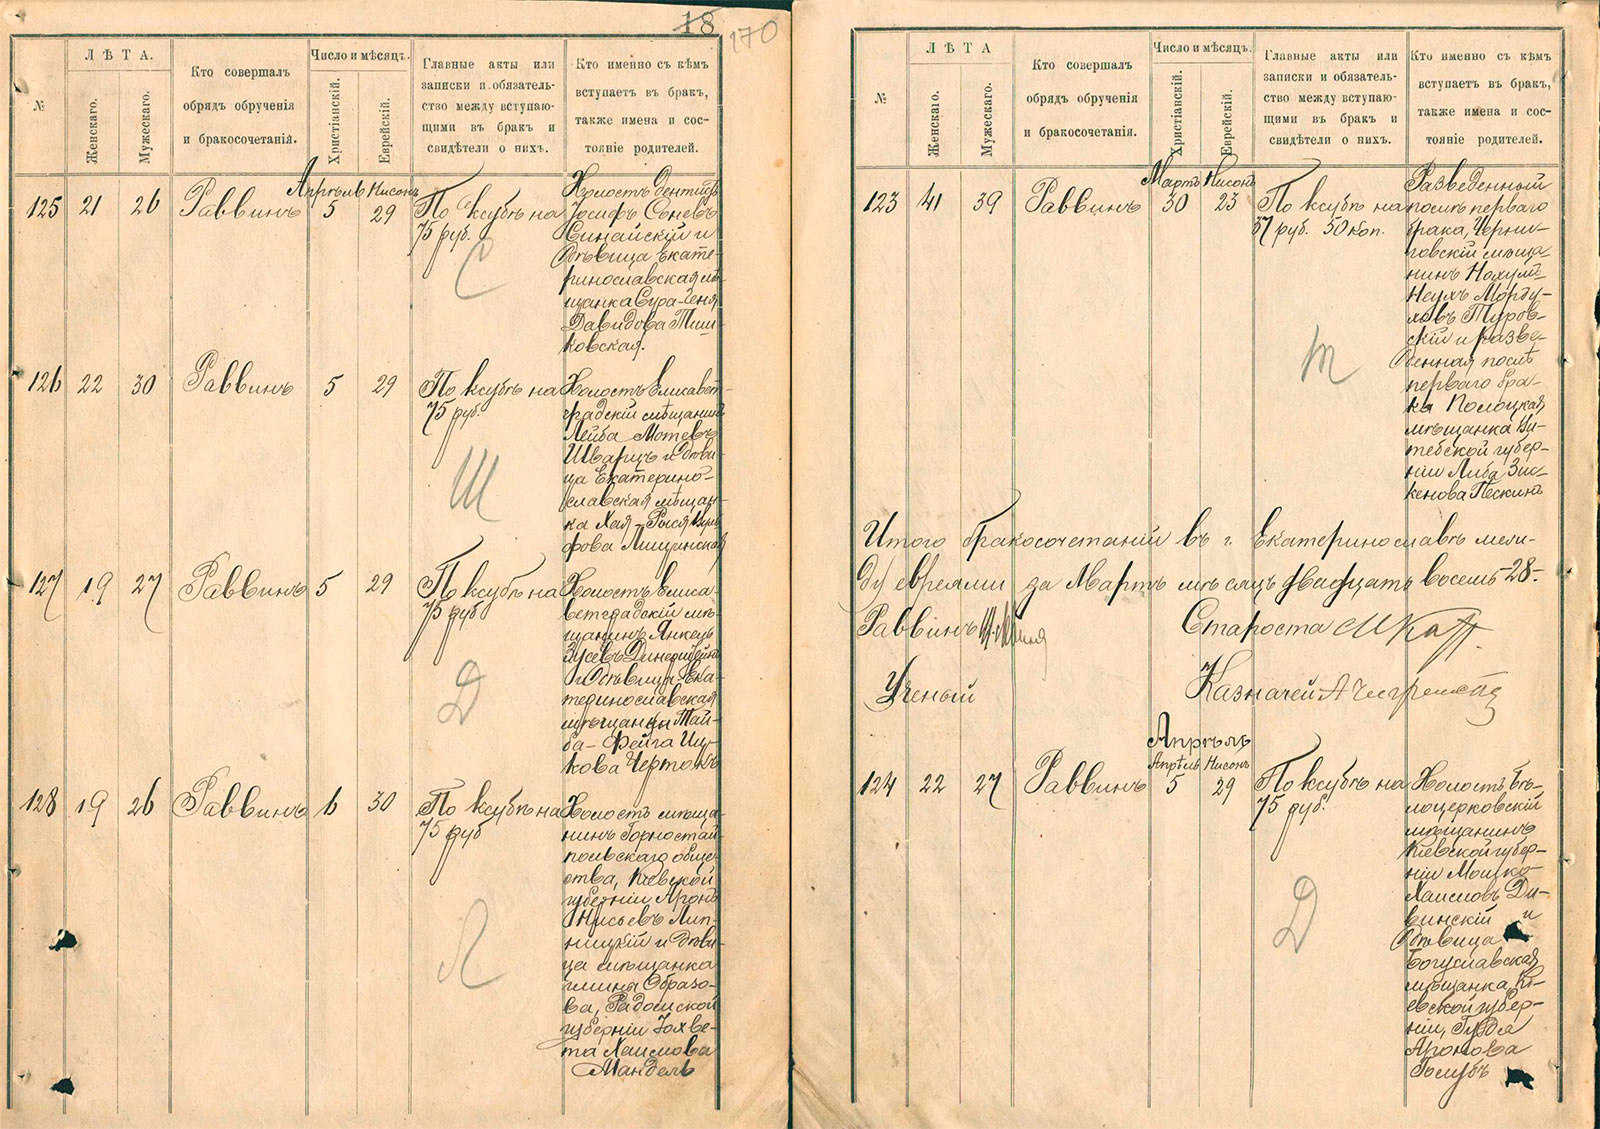 18
170
№
ЛѢТА.
Женскаго.
Мужескаго.
Кто совершалъ
обрядъ обрученія
и бракосочетанія.
Число и мѣсяцъ.
Христіанскій.
Еврейскій.
Главные акты или
записки и обязатель-
ство между вступаю-
щими въ бракъ и
свидѣтели о нихъ.
Кто именно съ кѣмъ
вступаетъ въ бракъ,
также имена и сос-
тояніе родителей.
Апрѣль Нисонъ
125 21 26 Раввинъ 5 29 По ксубѣ на
75 руб.
С
Холостъ дентистъ
Іосифъ
Синайскій и
дѣвица Екате-
ринославская мѣ-
щанка Сура-Геня
Давидова Тиш-
ковская.
126 22 30 Раввинъ 5 29 По ксубѣ на
75 руб.
Ш
Холостъ Елисавет-
градскій мѣщанинъ
Лейба Мотевъ
Шварцъ и дѣви-
ца Екатерино-
славская мѣщан-
ка Хая-Рыся
фова Лищинская
127 19 27 Раввинъ 5 29 По ксубѣ на
75 руб
Д
Холостъ Елиса-
ветградскій мѣ-
щанинъ Янкель
Зусевъ
и дѣвица Ека-
теринославская
мѣщанка Тай-
ба-Фейга Иц-
кова Чертокъ
128 19 26 Раввинъ 6 30 По ксубѣ на
75 руб
Л
Холостъ мѣща-
нинъ Горностай-
польскаго обще-
ства, Кіевской
губерніи Аронъ
Нисьевъ Лип-
ницкій и дѣви-
ца мѣщанка
гмины Образо-
ва, Радомской
губерніи Іохве-
та Хаимова
Мандель
№
ЛѢТА
Женскаго.
Мужескаго.
Кто совершалъ
обрядъ обрученія
и бракосочетанія.
Число и мѣсяцъ.
Христіанскій.
Еврейскій.
Главные акты или
записки и обязатель-
ство между вступаю-
щими въ бракъ и
свидѣтели о нихъ.
Кто именно съ кѣмъ
вступаетъ въ бракъ,
также имена и сос-
тояніе родителей.
Мартъ Нисонъ
123 41 39 Раввинъ 30 23 По ксубѣ на
37 руб. 50 коп.
Т
Разведенный
послѣ перваго
брака, Черни-
говскій мѣща-
нинъ Нохумъ-
Неухъ Морду-
ховъ Туров-
скій и разве-
денная послѣ
перваго бра-
ка Полоцкая
мѣщанка Ви-
тебской губер-
ніи Либа Зис-
кенова Пескинъ
Итого бракосочетаній въ г. Екатеринославѣ меж-
ду евреями за Мартъ мѣсяцъ двадцать восемь -28-
Раввинъ
Староста
Ученый
Казначей
Апрѣль
Апрѣль Нисонъ
124 22 27 Раввинъ 5 29 По ксубѣ на
75 руб.
Д
Холостъ Бѣ-
лоцерковскій
мѣщанинъ
Кіевской губер-
ніи Мошко
Хаимовъ Ди-
винскій и
дѣвица
Богуславская
мѣщанка, Кі-
евской губер-
ніи,
Аронова
Голубъ